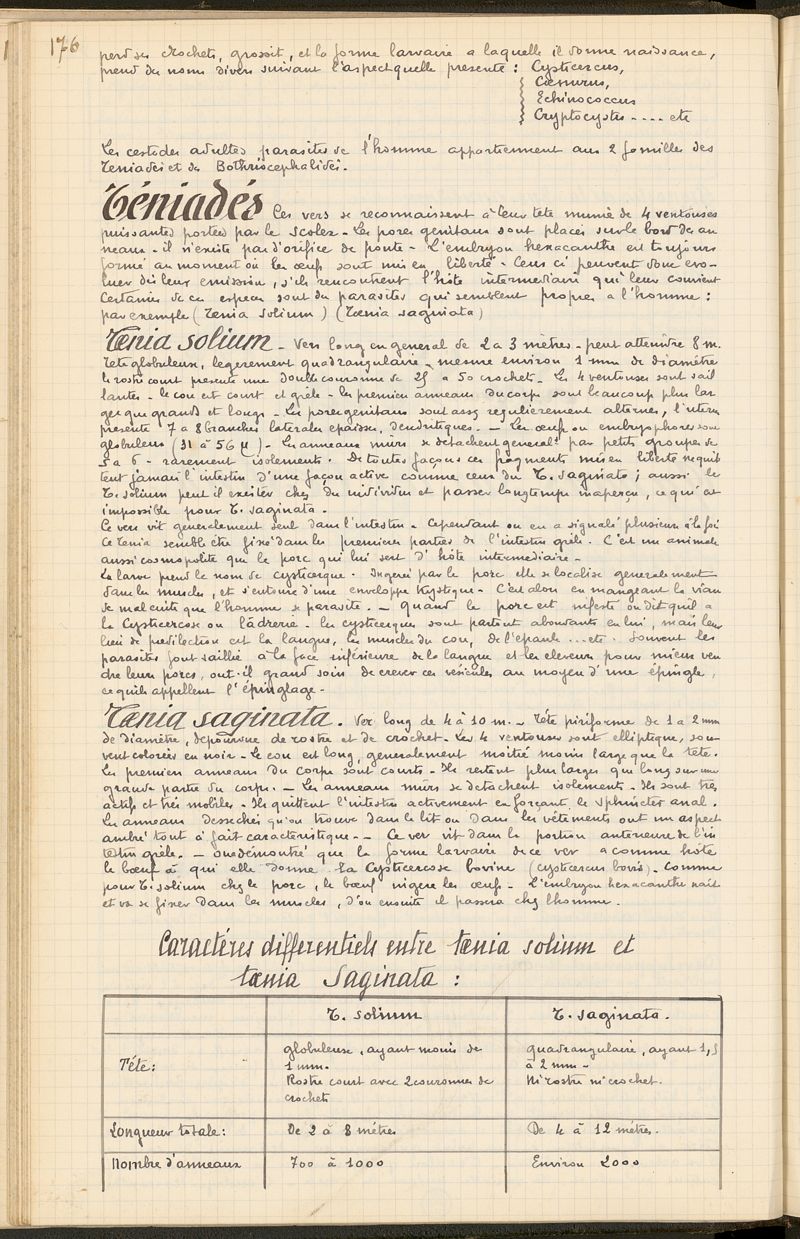 176
perd ses crochets, grossit, et la forme larvaire a laquelle il donne naissance,
prend des noms divers suivant l'aspect quelle presente : Cysticercus,
Cœnurus,
Echinococcus
Cryptocystis .... etc
Les cestodes adultes parasites de l'homme appartiennent aux 2 familles des
Teniadés et des Bothriocephalidés.
Téniadés Ces vers se reconnaissent à leur tete munie de 4 ventouses
puissantes portées par le scolex - Les pores genitaux sont placés sur le bord des an
neaux - il n'existe pas d'orifice de ponte - L'embryon hexacanthe est toujours
formé au moment où les œufs sont mis en liberté - Ceux ci peuvent donc evo-
luer dès leur emission, s'ils rencontrent l'hôte intermediaire qui leur convient
Certaines de ces especes sont des parasites qui semblent propres a l'homme :
par exemple (Tenia solium) (Tœnia saginata)
Tœnia solium - Vers long en general de 2 a 3 mètres - peut atteindre 8 m.
Tete globuleuse, legerement quadrangulaire - mesure environ 1 mm de diamétre
le rostre court presente une double couronne de 25 a 50 crochets - Les 4 ventouses sont sail
lantes - le cou est court et grèle - les premiers anneaux du corps sont beaucoup plus lar
ges que grands et longs - Les pores genitaux sont assez regulierement alternes, l'uterus
presente 7 a 8 branches laterales epaisses, dendritiques. - Les œufs ou embryophores sont
globuleux (31 à 56 µ) - Les anneaux mûrs se detachent general! par petits groupes de
5 a 6 - rarement isolements. De toutes façons ces fragments mis en liberté ne quit
tent jamais l'intestin d'une façon active comme ceux du T. saginata ; aussi le
T. solium peut il exister chez des individus et passer longtemps inaperçu, ce qui est
impossible pour T. saginata.
Ce vers vit generalement seul dans l'intestin - Cependant on en a signalé plusieurs à la fois
Ce Tenia semble être fixé dans les premieres parties de l'intestin grêle. C'est un animale
aussi cosmopolite que le porc qui lui sert d'hôte intermediaire -
La larve prend le nom de cysticerque. Ingeré par le porc elle se localise generalement
dans les muscles, et s'entoure d'une enveloppe Kystique - C'est alors en mangeant la vian
de mal cuite que l'homme se parasite. - Quand le porc est infesté on dit qu'il a
la Cysticercose ou ladrerie - les cysticerques sont partout abondants en lui, mais leur
lieu de predilection est la langue, les muscles du cou, de l'epaule ... etc. Souvent les
parasites font saillie à la face inférieure de la langue et les eleveurs pour mieux ven
dre leurs porcs, ont-il grand soin de crever ces vésicules au moyen d'une épingle,
ce qu'ils appellent l'épinglage -
Tænia saginata. Ver long de 4 à 10 m. - Tête piriforme de 1 a 2 mm
de diamétre, depourvue de rostre et de crochet - Les 4 ventouses sont elliptique, sou-
vent colorées en noir - Le cou est long, generalement moitié moins large que la tete.
Les premiers anneaux du corps sont courts - Ils restent plus larges que longs sur une
grande partie du corps. - Les anneaux mûrs se detachent isolements - Ils sont très
actifs et très mobiles - Ils quittent l'intestin activement en forçant le sphincter anal.
Les anneaux desséchés qu'on trouve dans le lit ou dans les vétements ont un aspect
ambré tout à fait caracteristique. - Ce ver vit dans la portion anterieure de l'in
testin grêle. - On a démontré que la forme larvaire de ce ver a comme hote
le bœuf à qui elle donne la Cysticercose bovine (cysticercus bovis) - Comme
pour T. solium chez le porc, le bœuf ingere les œufs - L'embryon hexacanthe nait
et va se fixer dans les muscles, d'où ensuite il passera chez l'homme.
Caractéres differentiels entre tænia solium et
tænia Saginata :
T. solium
T. saginata.
Tête:
globuleuse, ayant moins de
1 mm -
Rostre court avec 2 couronnes de
crochets
quadrangulaire, ayant 1,5
à 2 mm -
Ni rostre ni crochet.
Longueur totale:
De 2 à 8 métres
De 4 à 12 métres.
Nombre d'anneaux
700 à 1000
Environ 2000